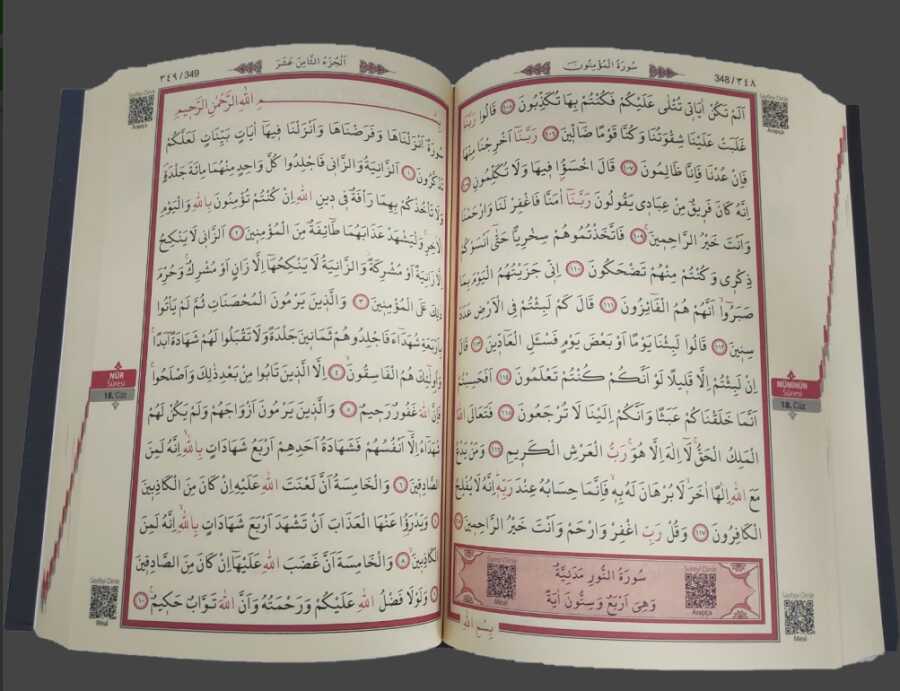 سُورَةُ الْمُؤْمِنُونَ
348 / ٣٤٨
اَلَمْ تَكُنْ اٰيَاتٖي تُتْلٰى عَلَيْكُمْ فَكُنْتُمْ بِهَا تُكَذِّبُونَ ﴿١٠٥﴾ قَالُوا رَبَّنَا
غَلَبَتْ عَلَيْنَا شِقْوَتُنَا وَكُنَّا قَوْمًا ضَٓالّٖينَ ﴿١٠٦﴾ رَبَّنَٓا اَخْرِجْنَا مِنْهَا
فَاِنْ عُدْنَا فَاِنَّا ظَالِمُونَ ﴿١٠٧﴾ قَالَ اخْسَؤُ۫ا فٖيهَا وَلَا تُكَلِّمُونِ ﴿١٠٨﴾
اِنَّهُ كَانَ فَرٖيقٌ مِنْ عِبَادٖي يَقُولُونَ رَبَّنَٓا اٰمَنَّا فَاغْفِرْ لَنَا وَارْحَمْنَا
وَاَنْتَ خَيْرُ الرَّاحِمٖينَ ﴿١٠٩﴾ فَاتَّخَذْتُمُوهُمْ سِخْرِيًّا حَتّٰٓى اَنْسَوْكُمْ
ذِكْرٖي وَكُنْتُمْ مِنْهُمْ تَضْحَكُونَ ﴿١١٠﴾ اِنّٖي جَزَيْتُهُمُ الْيَوْمَ بِمَا
صَبَرُٓوا اَنَّهُمْ هُمُ الْفَٓائِزُونَ ﴿١١١﴾ قَالَ كَمْ لَبِثْتُمْ فِي الْاَرْضِ عَدَدَ
سِنٖينَ ﴿١١٢﴾ قَالُوا لَبِثْنَا يَوْمًا اَوْ بَعْضَ يَوْمٍ فَسْـَٔلِ الْعَٓادّٖينَ ﴿١١٣﴾ قَالَ
اِنْ لَبِثْتُمْ اِلَّا قَلٖيلًا لَوْ اَنَّكُمْ كُنْتُمْ تَعْلَمُونَ ﴿١١٤﴾ اَفَحَسِبْتُمْ
اَنَّمَا خَلَقْنَاكُمْ عَبَثًا وَاَنَّكُمْ اِلَيْنَا لَا تُرْجَعُونَ ﴿١١٥﴾ فَتَعَالَى اللّٰهُ
الْمَلِكُ الْحَقُّ لَٓا اِلٰهَ اِلَّا هُوَ رَبُّ الْعَرْشِ الْكَرٖيمِ ﴿١١٦﴾ وَمَنْ يَدْعُ
مَعَ اللّٰهِ اِلٰهًا اٰخَرَ لَا بُرْهَانَ لَهُ بِهٖ فَاِنَّمَا حِسَابُهُ عِنْدَ رَبِّهٖ اِنَّهُ لَا يُفْلِحُ
الْكَافِرُونَ ﴿١١٧﴾ وَقُلْ رَبِّ اغْفِرْ وَارْحَمْ وَاَنْتَ خَيْرُ الرَّاحِمٖينَ ﴿١١٨﴾
سُورَةُ النُّورِ مَدَنِيَّةٌ
وَهِيَ اَرْبَعٌ وَسِتُّونَ اٰيَةً
Sayfayı Dinle
Arapça
Sayfayı Dinle
Meal
Sureyi Dinle
Arapça
Meal
MÜMİNÛN
Sûresi
18. Cüz
بِسْمِ اللّٰهِ
٣٤٩ / 349
اَلْجُزْءُ الثَّامِنَ عَشَرَ
بِسْمِ اللّٰهِ الرَّحْمٰنِ الرَّحٖيمِ
سُورَةٌ اَنْزَلْنَاهَا وَفَرَضْنَاهَا وَاَنْزَلْنَا فٖيهَٓا اٰيَاتٍ بَيِّنَاتٍ لَعَلَّكُمْ
تَذَكَّرُونَ ﴿١﴾ اَلزَّانِيَةُ وَالزَّانٖي فَاجْلِدُوا كُلَّ وَاحِدٍ مِنْهُمَا مِائَةَ جَلْدَةٍ
وَلَا تَأْخُذْكُمْ بِهِمَا رَأْفَةٌ فٖي دٖينِ اللّٰهِ اِنْ كُنْتُمْ تُؤْمِنُونَ بِاللّٰهِ وَالْيَوْمِ
الْاٰخِرِ وَلْيَشْهَدْ عَذَابَهُمَا طَٓائِفَةٌ مِنَ الْمُؤْمِنٖينَ ﴿٢﴾ اَلزَّانٖي لَا يَنْكِحُ
اِلَّا زَانِيَةً اَوْ مُشْرِكَةً وَالزَّانِيَةُ لَا يَنْكِحُهَٓا اِلَّا زَانٍ اَوْ مُشْرِكٌ وَحُرِّمَ
ذٰلِكَ عَلَى الْمُؤْمِنٖينَ ﴿٣﴾ وَالَّذٖينَ يَرْمُونَ الْمُحْصَنَاتِ ثُمَّ لَمْ يَأْتُوا
بِاَرْبَعَةِ شُهَدَٓاءَ فَاجْلِدُوهُمْ ثَمَانٖينَ جَلْدَةً وَلَا تَقْبَلُوا لَهُمْ شَهَادَةً اَبَدًا
وَاُو۬لٰٓئِكَ هُمُ الْفَاسِقُونَ ﴿٤﴾ اِلَّا الَّذٖينَ تَابُوا مِنْ بَعْدِ ذٰلِكَ وَاَصْلَحُوا
فَاِنَّ اللّٰهَ غَفُورٌ رَحٖيمٌ ﴿٥﴾ وَالَّذٖينَ يَرْمُونَ اَزْوَاجَهُمْ وَلَمْ يَكُنْ لَهُمْ
شُهَدَٓاءُ اِلَّٓا اَنْفُسُهُمْ فَشَهَادَةُ اَحَدِهِمْ اَرْبَعُ شَهَادَاتٍ بِاللّٰهِ اِنَّهُ لَمِنَ
الصَّادِقٖينَ ﴿٦﴾ وَالْخَامِسَةُ اَنَّ لَعْنَتَ اللّٰهِ عَلَيْهِ اِنْ كَانَ مِنَ الْكَاذِبٖينَ
﴿٧﴾ وَيَدْرَؤُ۬ا عَنْهَا الْعَذَابَ اَنْ تَشْهَدَ اَرْبَعَ شَهَادَاتٍ بِاللّٰهِ اِنَّهُ لَمِنَ
الْكَاذِبٖينَ ﴿٨﴾ وَالْخَامِسَةَ اَنَّ غَضَبَ اللّٰهِ عَلَيْهَٓا اِنْ كَانَ مِنَ الصَّادِقٖينَ
﴿٩﴾ وَلَوْلَا فَضْلُ اللّٰهِ عَلَيْكُمْ وَرَحْمَتُهُ وَاَنَّ اللّٰهَ تَوَّابٌ حَكٖيمٌ ﴿١٠﴾
Sayfayı Dinle
Arapça
NÛR
Sûresi
18. Cüz
Sayfayı Dinle
Meal